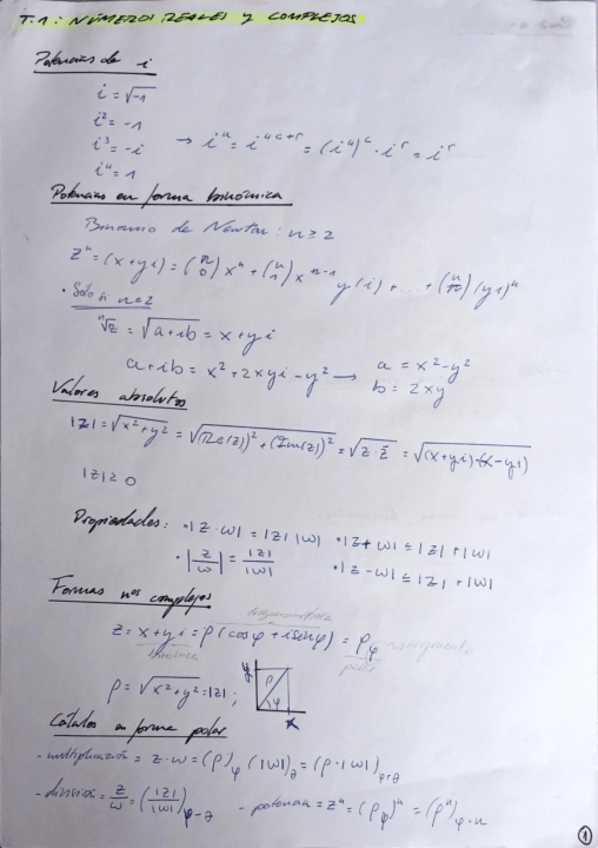 T.1: NÚMEROS REALES Y COMPLEJOS
Potencias de i
i = √-1
i² = -1
i³ = -i → iⁿ = i^(4c+r) = (i⁴)^c · i^r = i^r
i⁴ = 1
Potencias en forma binómica
Binomio de Newton: n ≥ 2
zⁿ = (x+yi) = (n 0) xⁿ + (n 1) x^(n-1) y(i) + ... + (n n) (yi)ⁿ
· Solo si n=2
ⁿ√z = √(a+ib) = x+yi
a+ib = x²+2xyi-y² → a = x²-y²
b = 2xy
Valores absolutos
|z| = √(x²+y²) = √((Re(z))² + (Im(z))²) = √(z·z̄) = √((x+yi)·(x-yi))
|z| ≥ 0
Propiedades: · |z·w| = |z| |w| · |z+w| ≤ |z| + |w|
· |z/w| = |z|/|w| · |z-w| ≤ |z| + |w|
Formas nos complejos
trigonométrica
z = x+yi = ρ(cosφ + i sinφ) = ρφ → argumento
binómica polar
ρ = √(x²+y²) = |z| ; y ρ φ x
Cálculos en forma polar
- multiplicación = z·w = (ρ)φ (|w|)∂ = (ρ·|w|)φ+∂
- división = z/w = (|z|/|w|)φ-∂ - potencia = zⁿ = (ρφ)ⁿ = (ρⁿ)φ·n
1